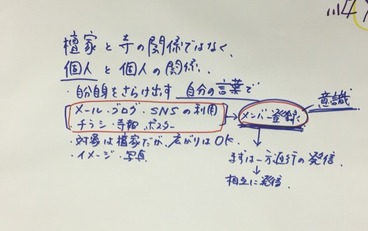 檀家と寺の関係ではなく、
個人と個人の関係、
・自分自身をさらけ出す 自分の言葉で
メール・ブログ・SNSの利用
チラシ・寺報・ポスター
→ メンバー登録 意識
・対象は檀家だが、広がりはOK。
・イメージ・写真
まずは一方通行の発信。
↓
相互に発信。